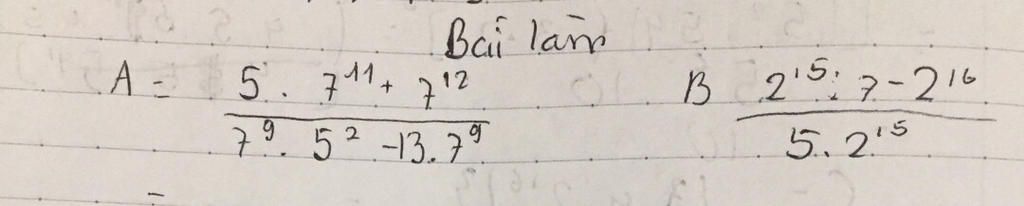 Bài làm
A = (5 . 7^11 + 7^12) / (7^9 . 5^2 - 13 . 7^9) B (2^15 : 7 - 2^16) / (5 . 2^15)
=